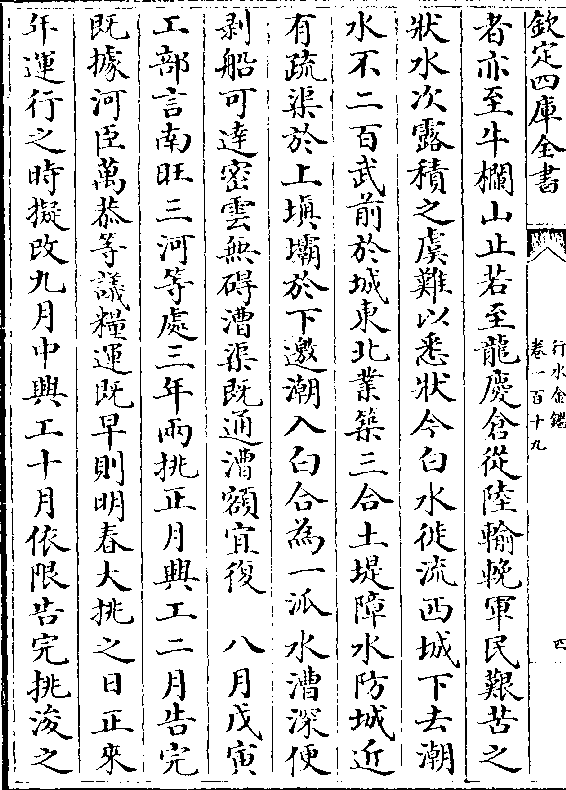 欽定四庫全書
行水金鑑
卷一百十九
四
者亦至牛欄山止若至龍慶倉從陸輸輓軍民艱苦之
狀水次露積之虞難以悉狀今白水徙流西城下去潮
水不二百武前於城東北業築三合土堤障水防城近
有疏渠於上塡壩於下邀潮入白合為一派水漕深便
剥船可達密雲無碍漕渠既通漕額宜復 八月戊寅
工部言南旺三河等處三年兩挑正月興工二月告完
既據河臣萬恭等議糧運既早則明春大挑之日正來
年運行之時擬改九月中興工十月依限告完挑浚之